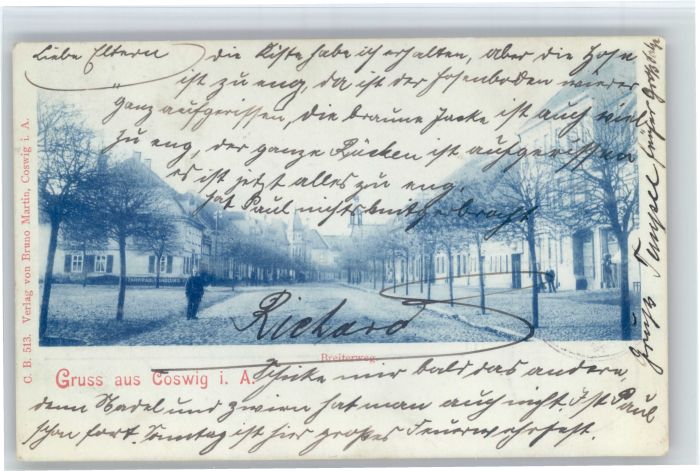 Liebe Eltern
die Kiste habe ich erhalten, aber die Hose
ist zu eng, da ist der Hosenboden wieder
ganz aufgerissen, die braune Jacke ist auch viel
zu eng, der ganze Rücken ist aufgerissen
es ist jetzt alles zu eng,
hat Paul nichts mitgebracht
Richard
Breiterweg
Gruss aus Coswig i. A.
Schicke mir bald das andere,
denn Nadel und zwirn hat man auch nicht. Ist Paul
schon fort. Sonntag ist hier großes Feuerwehrfest.
C. B. 513. Verlag von Bruno Martin, Coswig i. A.
Gruß